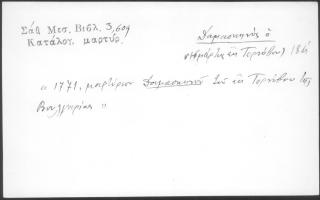 Σάθ Μεσ. Βιβλ. 3,609
Κατάλογ. μαρτύρ.
Δαμασκηνὸς ὁ
νεομάρτυς ἐκ Τορνόβου
« 1771, μαρτύριον Δαμασκηνοῦ τοῦ ἐκ Τορνόβου τῆς
Βουλγαρίας »